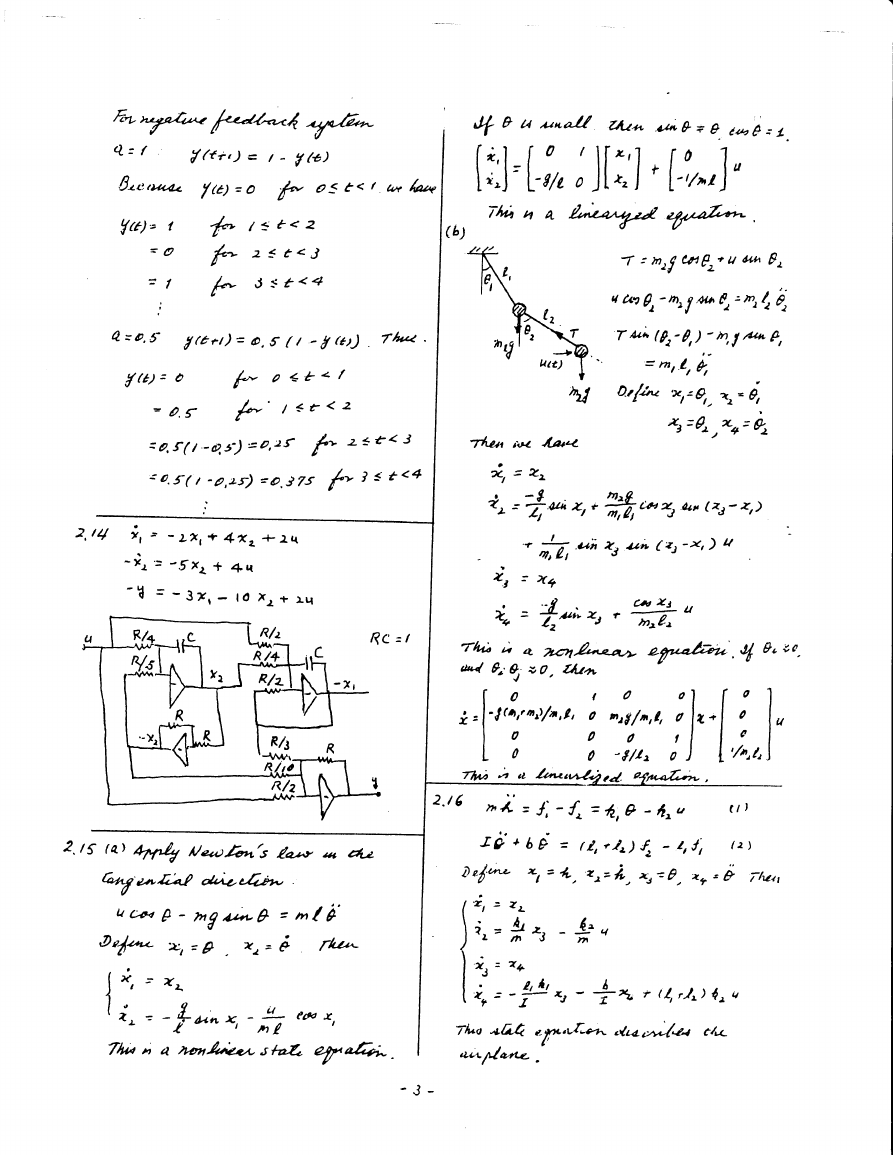 For negative feedback system
a=1 y(t+1) = 1 - y(t)
Because y(t) = 0 for 0 ≤ t < 1 we have
y(t) = 1 for 1 ≤ t < 2
= 0 for 2 ≤ t < 3
= 1 for 3 ≤ t < 4
⋮
a=0.5 y(t+1) = 0.5 (1 - y(t)). Thus.
y(t) = 0 for 0 ≤ t < 1
= 0.5 for 1 ≤ t < 2
= 0.5(1-0.5) = 0.25 for 2 ≤ t < 3
= 0.5(1-0.25) = 0.375 for 3 ≤ t < 4
⋮
2.14 ẋ₁ = -2x₁ + 4x₂ + 2u
-ẋ₂ = -5x₂ + 4u
-y = -3x₁ - 10x₂ + 2u
u R/4 C R/2 RC = 1
R/5 R/4 C
x₂ R/2 -x₁
R
-x₂ R R/3 R
R/10
R/2 y
2.15 (a) Apply Newton's law in the
tangential direction
u cos θ - mg sin θ = mlθ̈
Define x₁ = θ, x₂ = θ̇. Then
ẋ₁ = x₂
ẋ₂ = -g/l sin x₁ - u/ml cos x₁
This is a nonlinear state equation.
If θ is small then sin θ = θ cos θ = 1.
[ẋ₁ ẋ₂] = [0 1; -g/l 0] [x₁ x₂] + [0; -1/ml] u
This is a linearyed equation.
(b)
θ₁ l₁
l₂ θ₂ T
m₁g u(t)
m₂g
T = m₂g cos θ₂ + u sin θ₂
u cos θ₂ - m₂g sin θ₂ = m₂l₂θ̈₂
T sin (θ₂-θ₁) - m₁g sin θ₁
= m₁l₁θ̈₁
Define x₁=θ₁, x₂=θ̇₁
x₃=θ₂, x₄=θ̇₂
Then we have
ẋ₁ = x₂
ẋ₂ = -g/l₁ sin x₁ + m₂g/m₁l₁ cos x₃ sin (x₃-x₁)
+ 1/m₁l₁ sin x₃ sin (x₃-x₁) u
ẋ₃ = x₄
ẋ₄ = -g/l₂ sin x₃ + cos x₃/m₂l₂ u
This is a nonlinear equation. If θᵢ ≈ 0,
and θᵢ θⱼ ≈ 0, then
ẋ = [0 1 0 0; -g(m₁+m₂)/m₁l₁ 0 m₂g/m₁l₁ 0; 0 0 0 1; 0 0 -g/l₂ 0] x + [0; 0; 0; 1/m₂l₂] u
This is a linearlized equation.
2.16 mḧ = f₁ - f₂ = k₁θ - k₂u (1)
Iθ̈ + bθ̇ = (l₁+l₂) f₂ - l₁f₁ (2)
Define x₁ = h, x₂ = ḣ, x₃ = θ, x₄ = θ̈ Then
ẋ₁ = x₂
ẋ₂ = k₁/m x₃ - k₂/m u
ẋ₃ = x₄
ẋ₄ = -l₁k₁/I x₃ - b/I x₄ + (l₁+l₂) k₂ u
This state equation describes the
airplane.
- 3 -